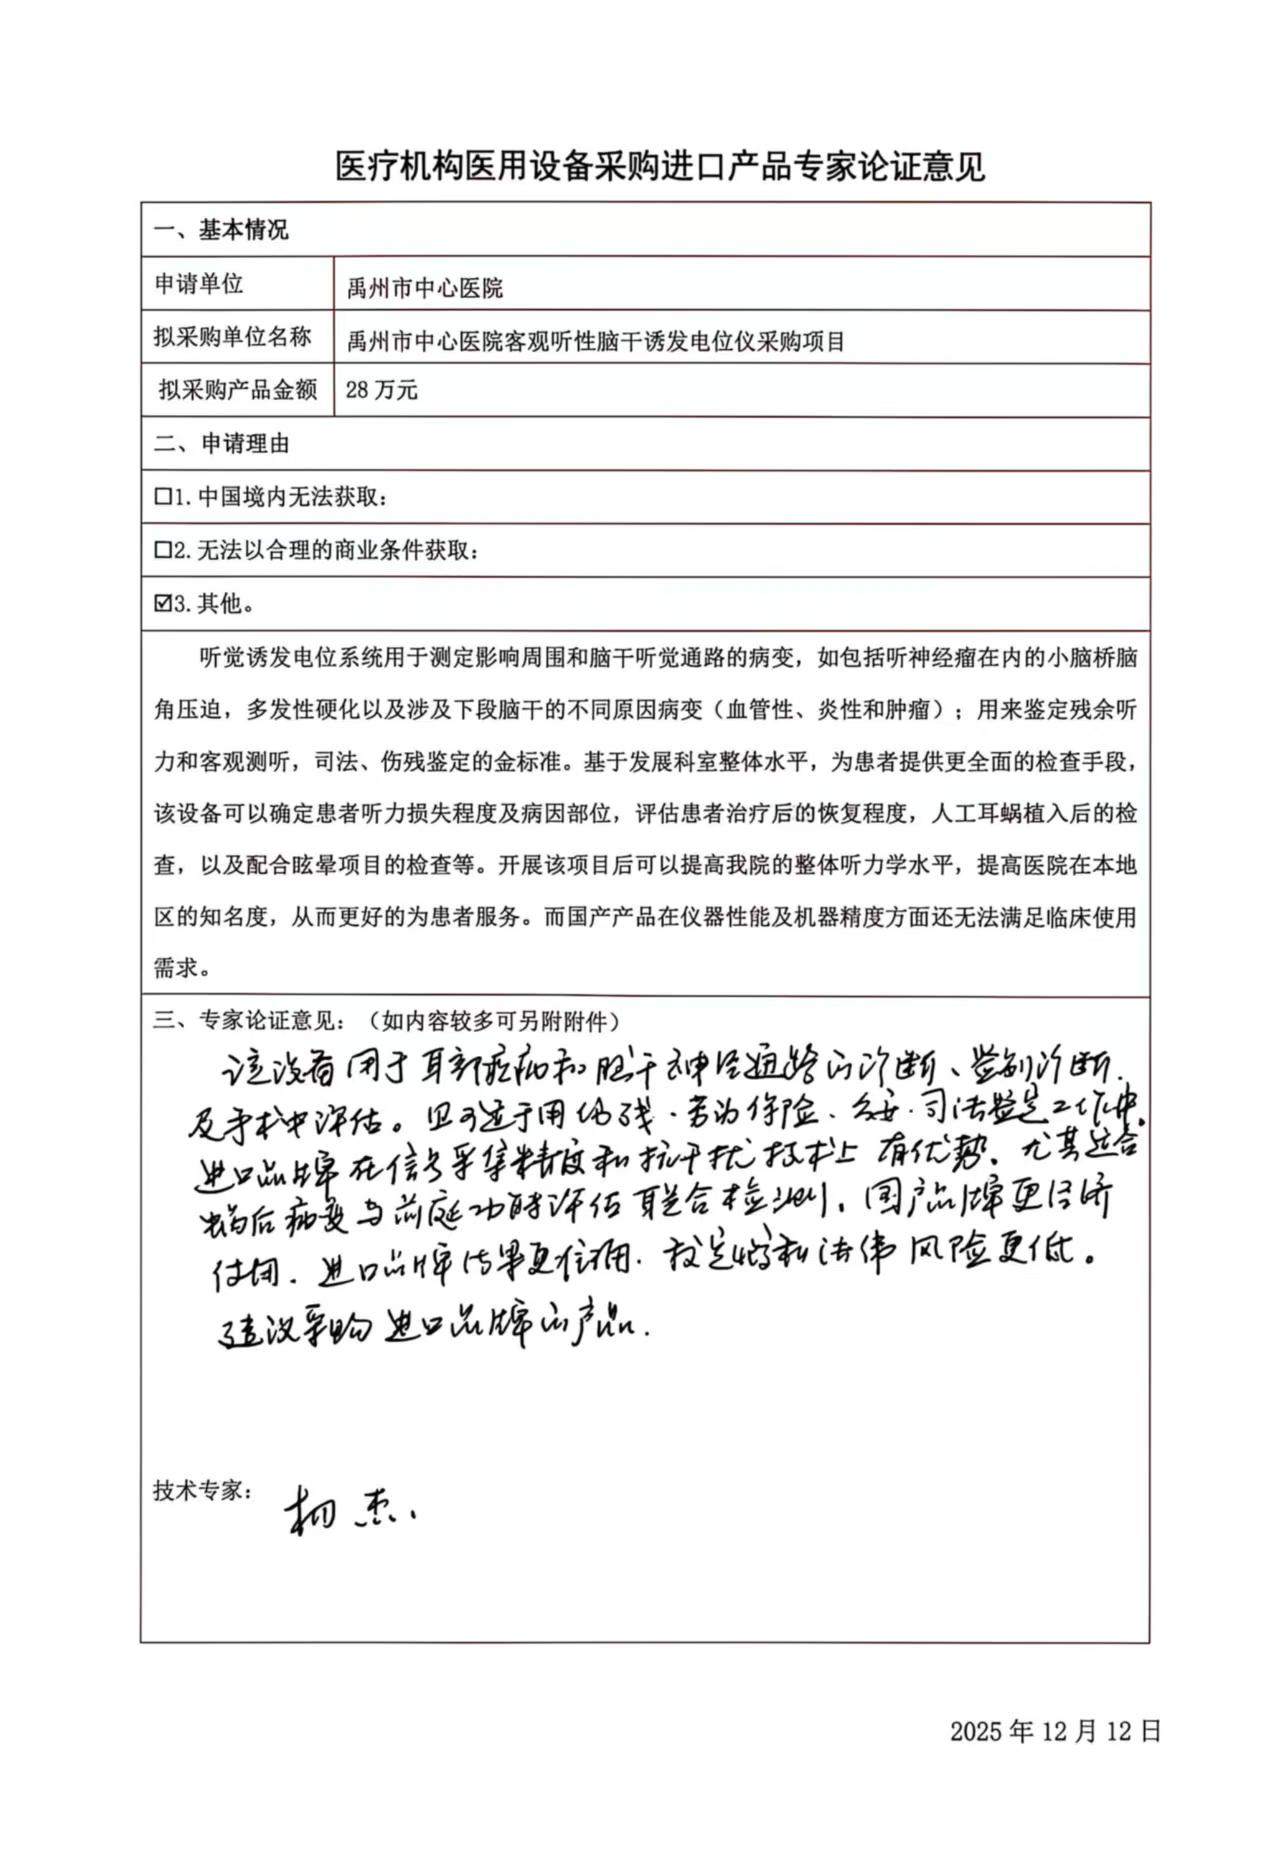 医疗机构医用设备采购进口产品专家论证意见
一、基本情况
申请单位 禹州市中心医院
拟采购单位名称 禹州市中心医院客观听性脑干诱发电位仪采购项目
拟采购产品金额 28 万元
二、申请理由
☐1.中国境内无法获取：
☐2.无法以合理的商业条件获取：
☑3.其他。
听觉诱发电位系统用于测定影响周围和脑干听觉通路的病变，如包括听神经瘤在内的小脑桥脑
角压迫，多发性硬化以及涉及下段脑干的不同原因病变（血管性、炎性和肿瘤）；用来鉴定残余听
力和客观测听，司法、伤残鉴定的金标准。基于发展科室整体水平，为患者提供更全面的检查手段，
该设备可以确定患者听力损失程度及病因部位，评估患者治疗后的恢复程度，人工耳蜗植入后的检
查，以及配合眩晕项目的检查等。开展该项目后可以提高我院的整体听力学水平，提高医院在本地
区的知名度，从而更好的为患者服务。而国产产品在仪器性能及机器精度方面还无法满足临床使用
需求。
三、专家论证意见：（如内容较多可另附附件）
该设备用于耳部疾病和脑干神经通路的诊断、鉴别诊断.
及手术中评估。且可适于用伤残.劳动保险、公安.司法鉴定工作中。
进口品牌在信号采集精度和抗干扰技术上有优势。尤其适合
蜗后病变与前庭功能评估联合检测。国产品牌更经济
进口品牌结果更 法律风险更低。
建议采购进口品牌的产品.
技术专家： 杰.
2025 年 12 月 12 日